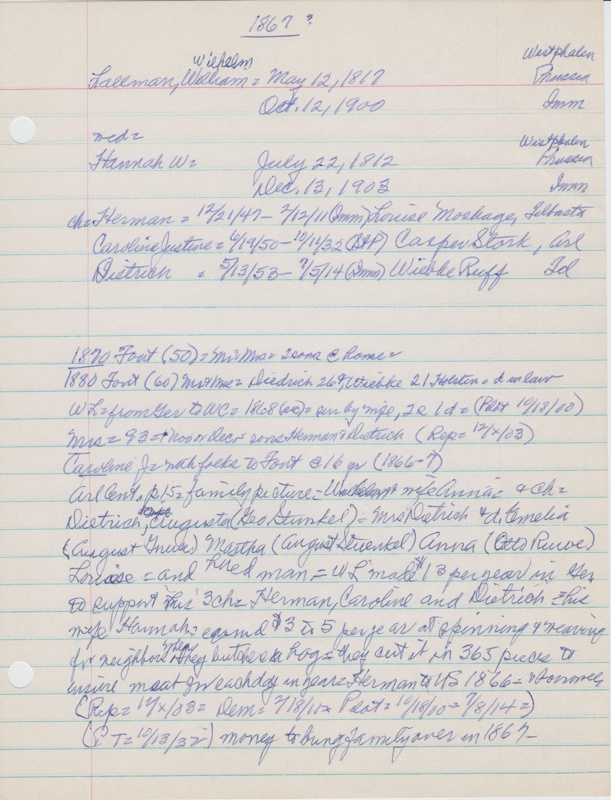 1867 ?
Wilhelm Westphalen
Lalleman, William = May 12, 1817 Prussia
Oct. 12, 1900 Imm
med =
Westphalen
Hannah W = July 22, 1812 Prussia
Dec. 13, 1903 Imm
ch = Herman = 12/21/47 - 2/12/11 (Imm) Louise Moskage,
Caroline Justine = 6/19/50 - 10/11/32 (StP) Casper Stork, Arl
Dietrich = 5/13/53 - 7/5/14 (Imm) Wiebke Ruff Id
1870 Font (50) = Mr Mrs = 2 sons @ home =
1880 Font (60) Mr & Mrs = Diedrich 26 & Wiebke 21 Holsten = d in law
WL = from Ger to WC = 1868 = sur by wife, 2s 1d = (Post 10/18/00)
Mrs = 93 = Nov or Dec = sons Herman & Dietrich (Rep = 12/x/03)
Caroline J = with folks to Font @ 16 yr (1866-7)
Arl Cent, p 15 = family picture = wife Annie & ch =
Dietrich, Augusta (Geo Stunkel) = Mrs Dietrich & d. Emelia
(August Gruwe) Martha (August Stuenkel) Anna (Otto Ruwe)
Louise = and hired man = WL made $13 per year in Ger
to support his 3 ch = Herman, Caroline and Dietrich = his
wife Hannah = earned $3 to 5 per year at spinning & weaving
for neighbors When they butcher a hog = they cut it in 365 pieces to
insure meat for each day in year = Herman to US 1866 = & borrowed
(Rep = 12/x/03 = Dem = 2/18/11 = Post = 10/18/00 = 7/8/14 =)
(ET = 10/13/32) money to bring family over in 1867 -